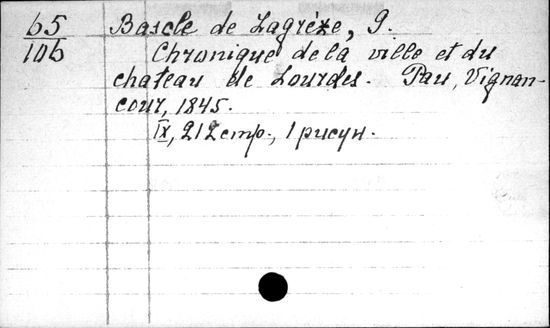 65
106
Bascle de Lagrèze, G.
Chronique de la ville et du
chateau de Lourdes. Pau, Vignan-
cour, 1845.
IX, 212 стр., 1 рисун.